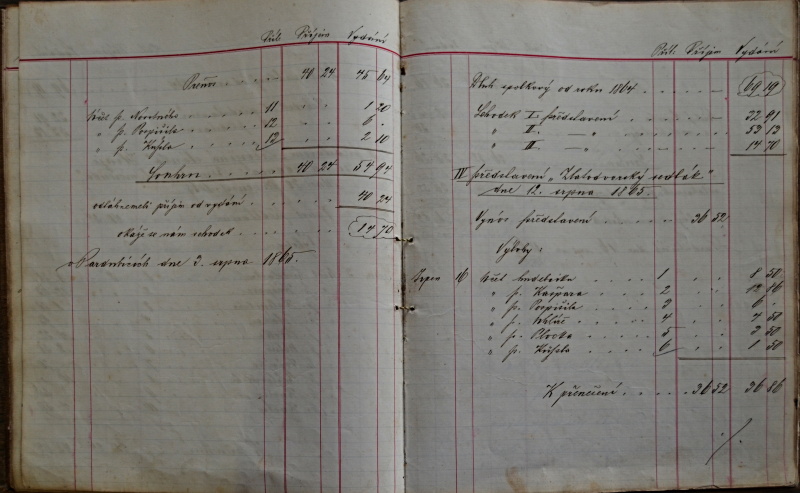 Příl. Příjem Vydání
Přenos . . . . 40 24 45 64
Účet p. Novotného . . . . 11 . . 1 20
„ p. Pospíšila . . . . 12 . . 6 .
„ p. Kušela . . . . 13 . . 2 10
Souhrn . . . . 40 24 54 94
odtáhnemeli příjem od vydání . . . . 40 24
okáže se nám schodek . . . . 14 70
v Pardubicích dne 3. srpna 1865.
Příl. Příjem Vydání
Dluh spolkový od roku 1864 . . . . 69 19
Schodek I. představení . . . . 22 91
„ II. — „ . . . . 53 13
„ III. — „ . . . . 14 70
IV představení „Zlatodvorský sedlák"
dne 12. srpna 1865.
Výnos představení . . . . 36 52
Výlohy:
Srpen 16 Účet hudebníka . . . . 1 . . 8 50
„ p. Kašpara . . . . 2 . . 12 86
„ p. Pospíšila . . . . 3 . . 6 .
„ p. . . . . 4 . .
„ p. . . . . 5 . .
„ p. Kušela . . . . 6 . . 1 50
K přenešení . . . . 36 52 36 86
./.